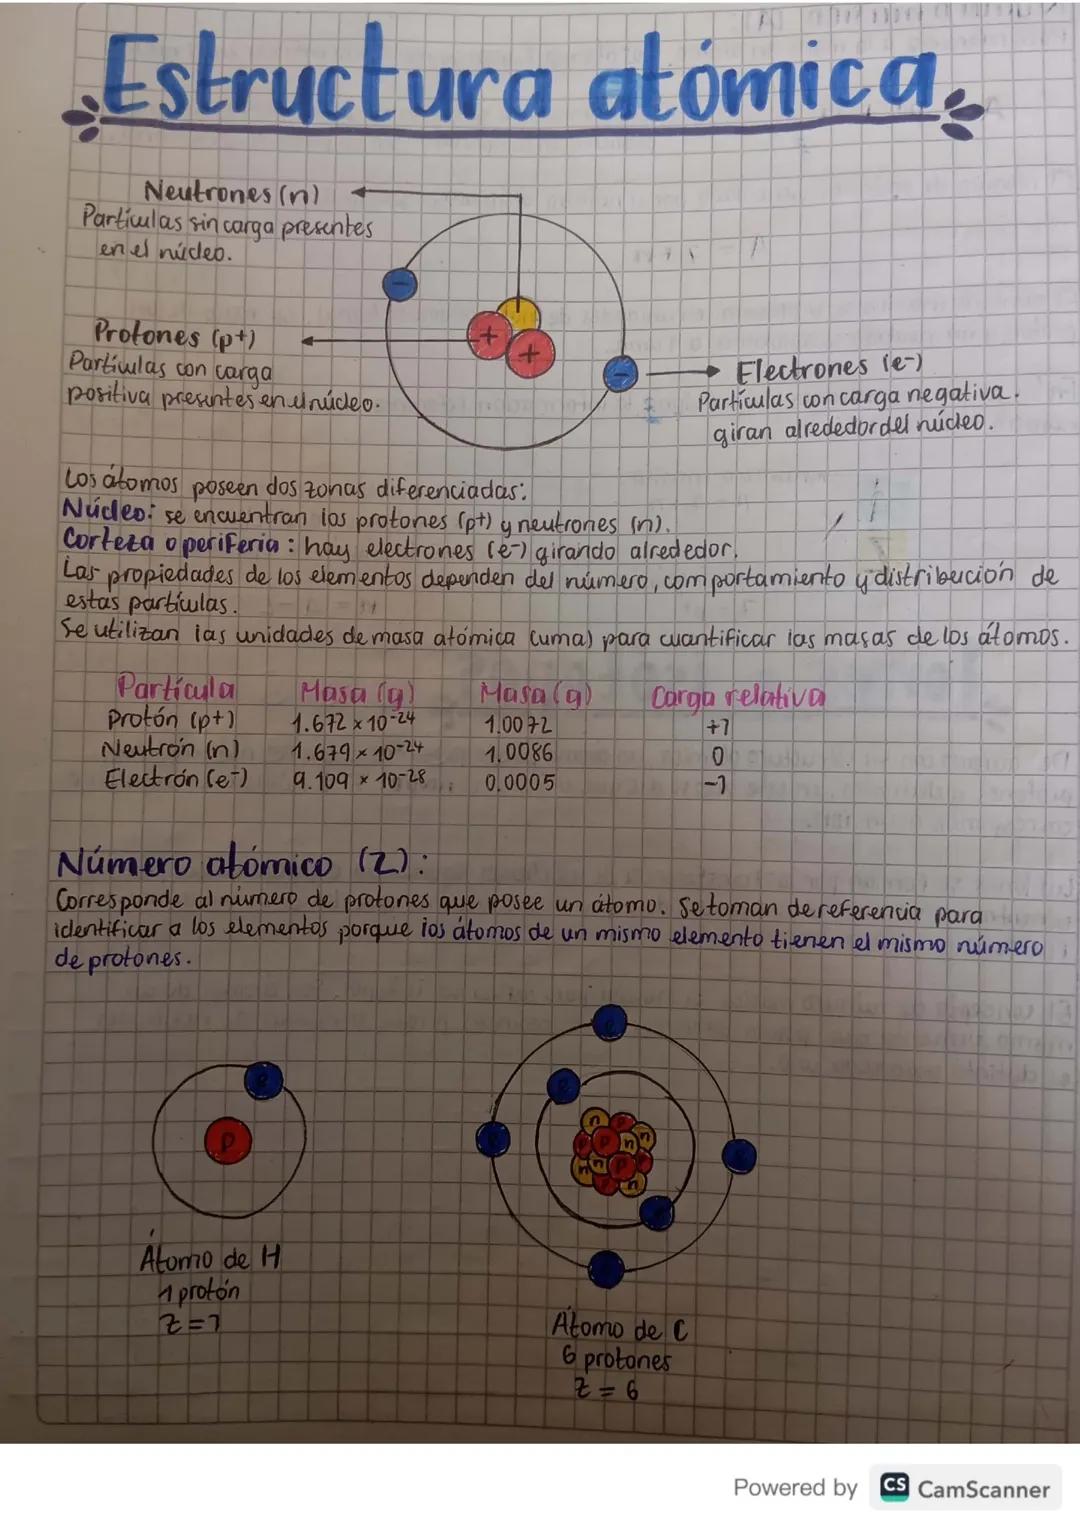 Estructura atómica
Neutrones (n)
Partículas sin carga presentes
en el núcleo.
Protones (p+)
Partículas con carga
positiva presentes en el núcleo.
Electrones (e-)
Partículas con carga negativa.
giran alrededor del núcleo.
-
+
+
-
Los átomos poseen dos zonas diferenciadas:
Núcleo: se encuentran los protones (p+) y neutrones (n).
Corteza o periferia: hay electrones (e-) girando alrededor.
Las propiedades de los elementos dependen del número, comportamiento y distribución de
estas partículas.
Se utilizan las unidades de masa atómica (uma) para cuantificar las masas de los átomos.
Partícula Masa (g) Masa (g) Carga relativa
Protón (p+) 1.672 x 10-24 1.0072 +1
Neutrón (n) 1.679 x 10-24 1.0086 0
Electrón (e-) 9.109 x 10-28 0.0005 -1
Número atómico (Z):
Corresponde al número de protones que posee un átomo. Se toman de referencia para
identificar a los elementos porque los átomos de un mismo elemento tienen el mismo número
de protones.
e
p
e
e
e
n p
p p n n
n n p p
p n
Átomo de H
1 protón
Z=1
Átomo de C
6 protones
Z = 6
Powered by CS CamScanner